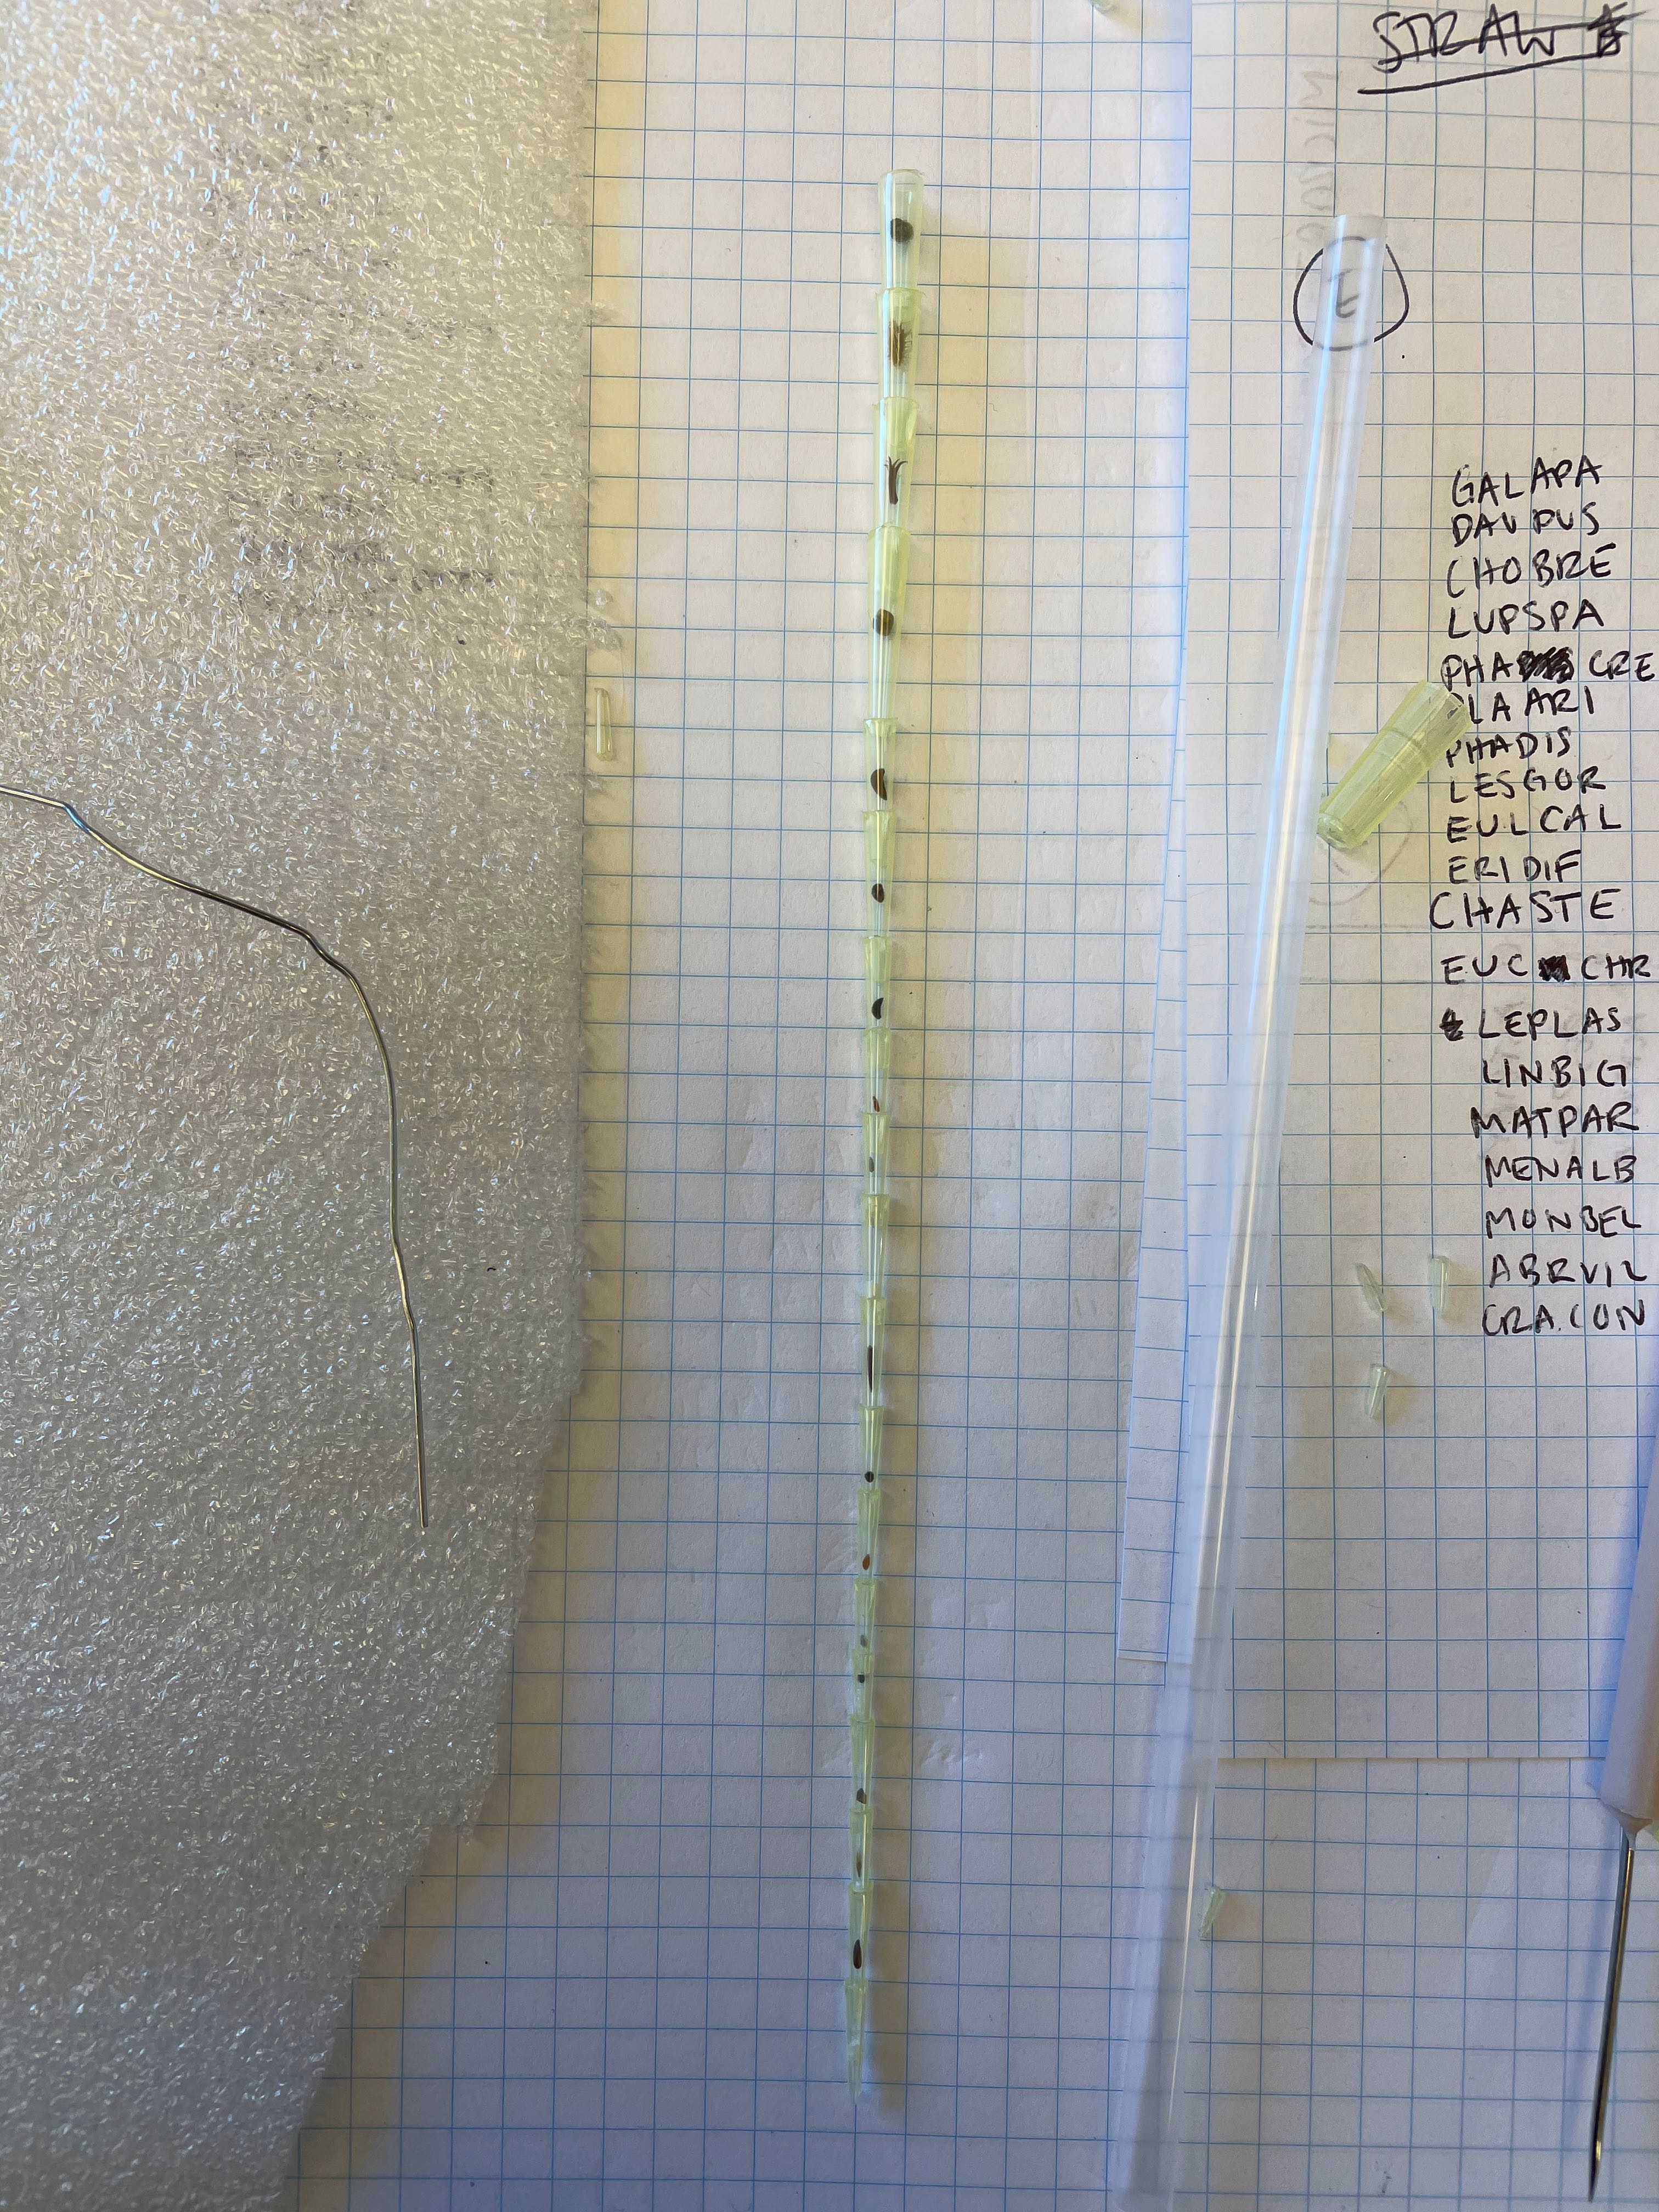 STRAW
E
GALAPA
DAUPUS
CHOBRE
LUPSPA
PHA CRE
LAARI
PHADIS
LESGOR
EULCAL
ERIDIF
CHASTE
EUC CHR
LEPLAS
LINBIG
MATPAR
MENALB
MONBEL
ABRVIL
CRACON